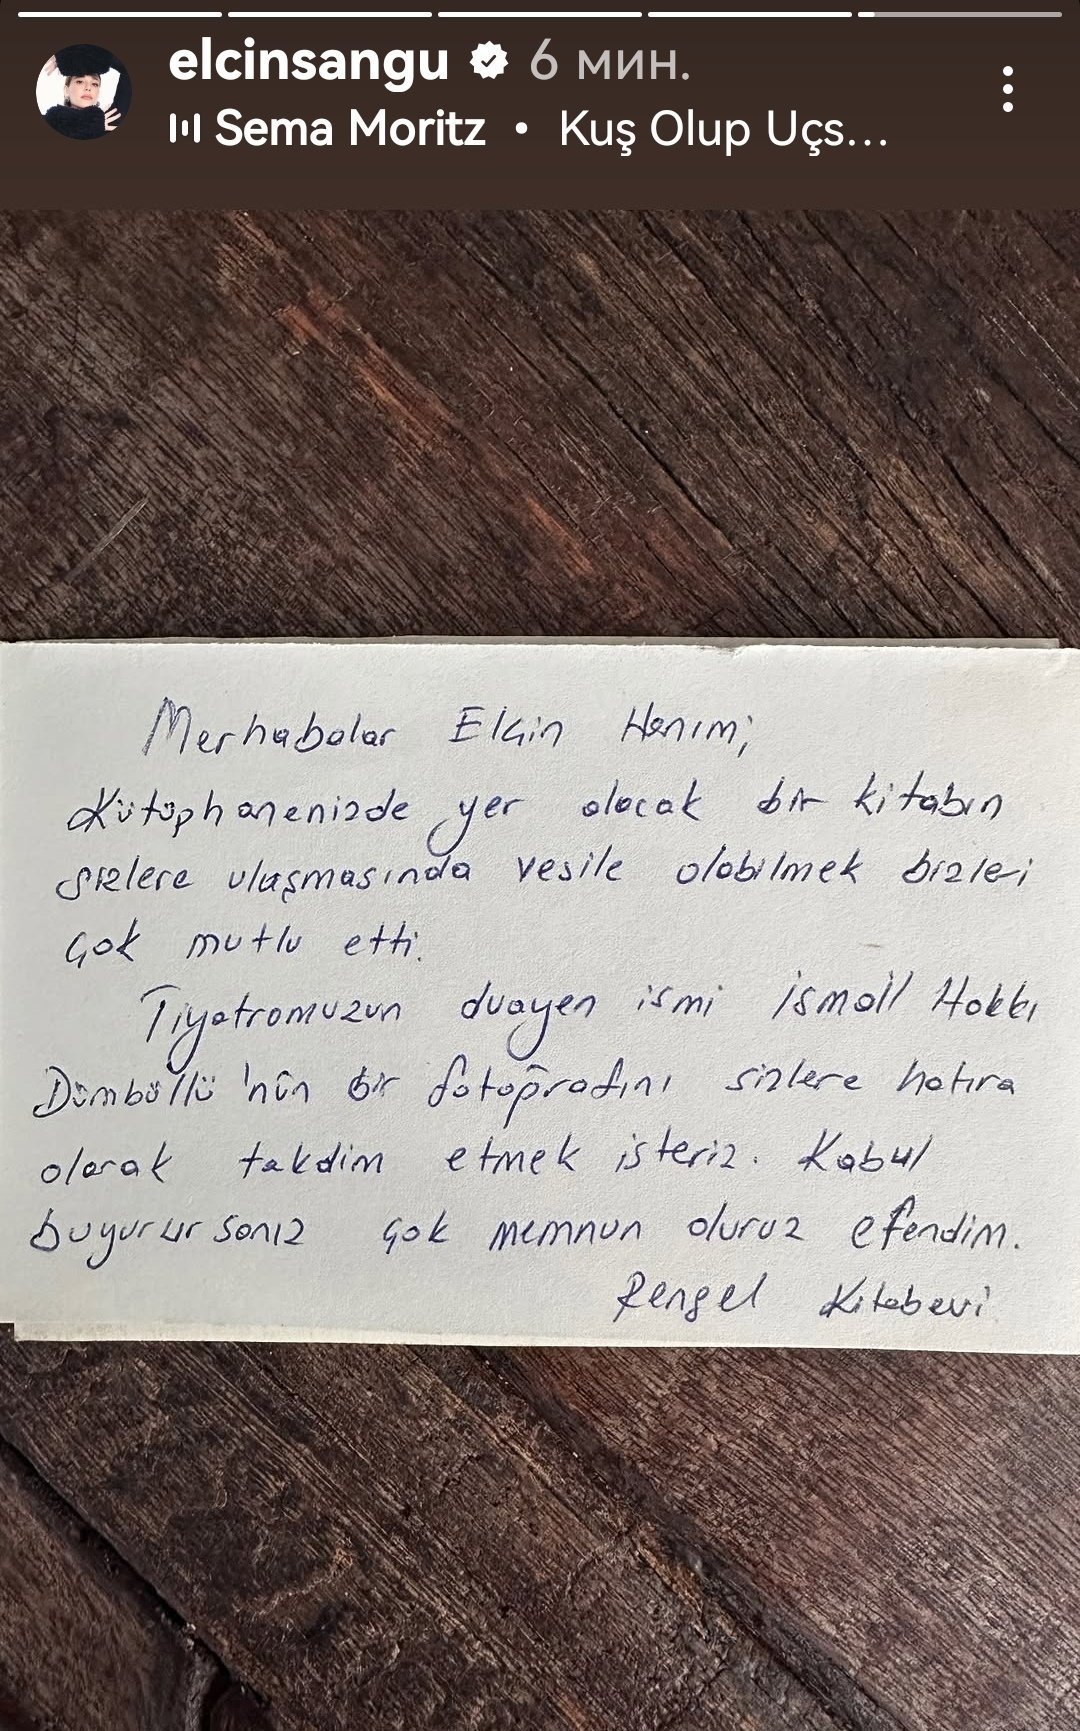 elcinsangu 6 мин.
Sema Moritz • Kuş Olup Uçs...
Merhabalar Elçin Hanım;
Kütüphanenizde yer alacak bir kitabın
sizlere ulaşmasında vesile olabilmek bizleri
çok mutlu etti.
Tiyatromuzun duayen ismi İsmail Hakkı
Dümbüllü'nün bir fotoğrafını sizlere hatıra
olarak takdim etmek isteriz. Kabul
buyurursanız çok memnun oluruz efendim.
Rengel Kitabevi